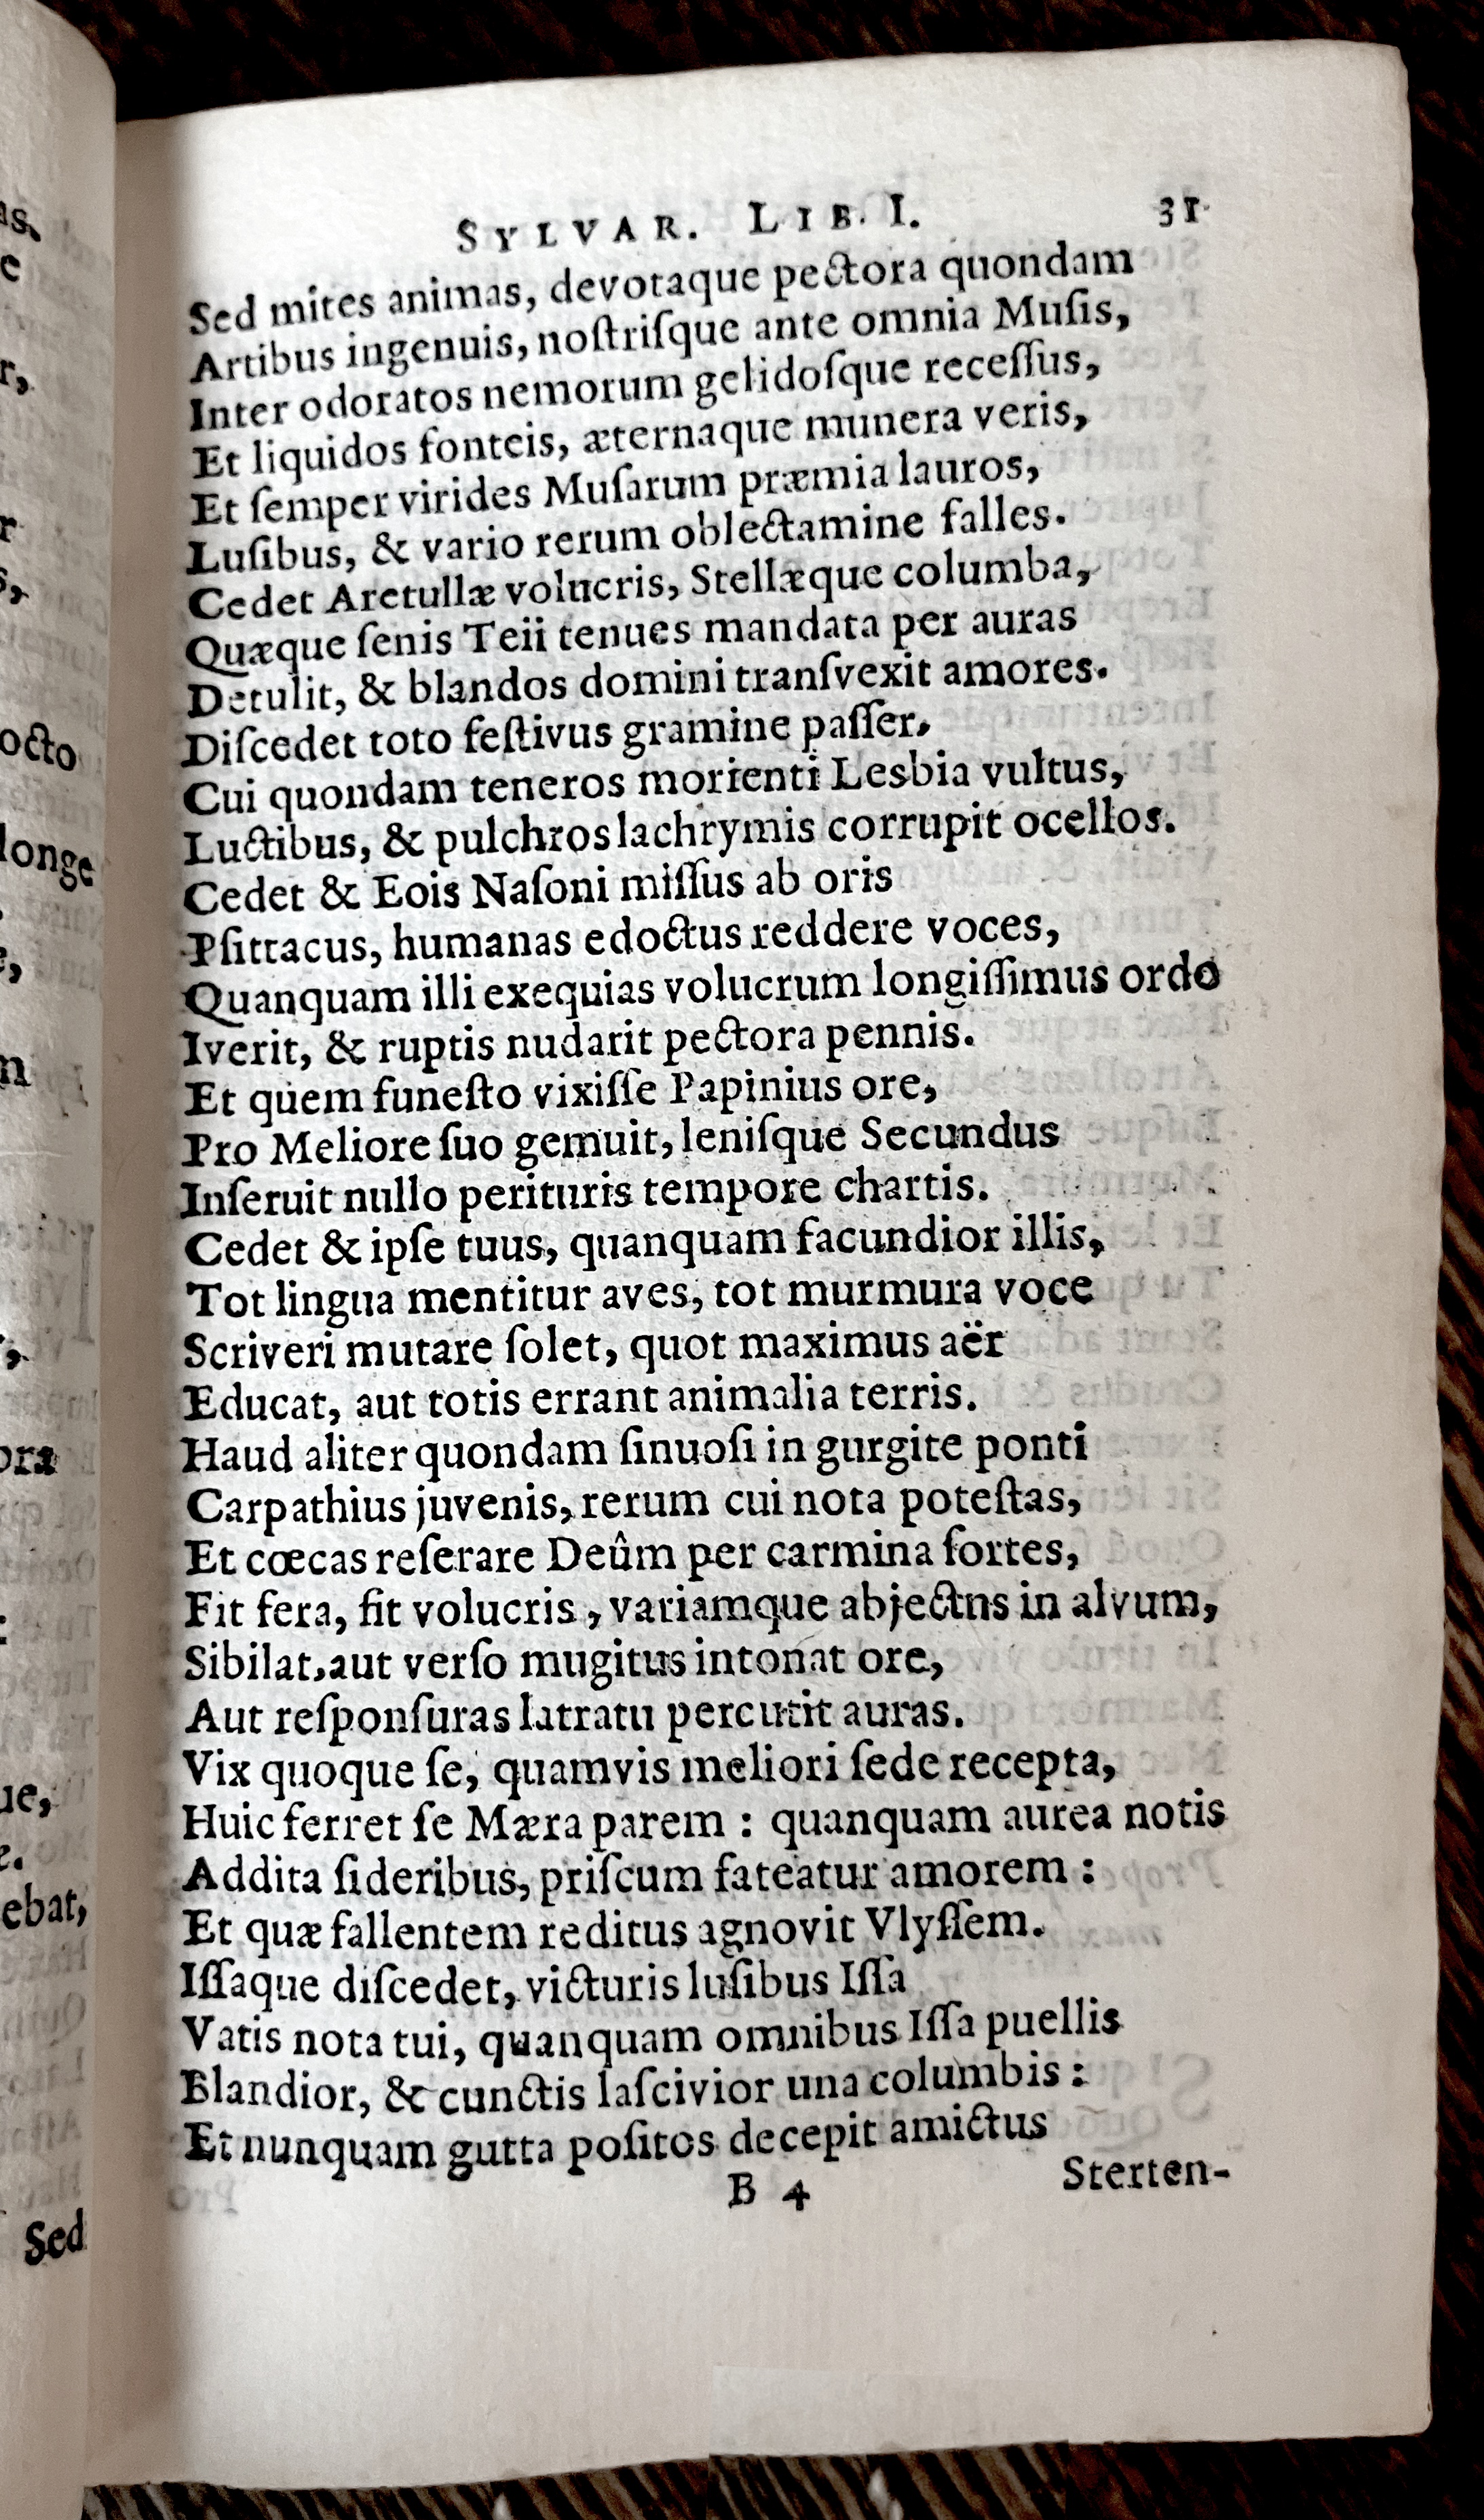 as.
e
r,
r
s,
octo
longe
e,
m
r,
ora
ue,
e.
ebat,
Sed
SYLVAR. LIB. I. 31
Sed mites animas, devotaque pectora quondam
Artibus ingenuis, noſtriſque ante omnia Muſis,
Inter odoratos nemorum gelidoſque receſſus,
Et liquidos fonteis, æternaque munera veris,
Et ſemper virides Muſarum præmia lauros,
Luſibus, & vario rerum oblectamine falles.
Cedet Aretullæ volucris, Stellæque columba,
Quæque ſenis Teii tenues mandata per auras
Detulit, & blandos domini tranſvexit amores.
Diſcedet toto feſtivus gramine paſſer,
Cui quondam teneros morienti Lesbia vultus,
Luctibus, & pulchros lachrymis corrupit ocellos.
Cedet & Eois Naſoni miſſus ab oris
Pſittacus, humanas edoctus reddere voces,
Quanquam illi exequias volucrum longiſſimus ordo
Iverit, & ruptis nudarit pectora pennis.
Et quem funeſto vixiſſe Papinius ore,
Pro Meliore ſuo gemuit, leniſque Secundus
Inſeruit nullo perituris tempore chartis.
Cedet & ipſe tuus, quanquam facundior illis,
Tot lingua mentitur aves, tot murmura voce
Scriveri mutare ſolet, quot maximus aër
Educat, aut totis errant animalia terris.
Haud aliter quondam ſinuoſi in gurgite ponti
Carpathius juvenis, rerum cui nota poteſtas,
Et cœcas reſerare Deûm per carmina ſortes,
Fit fera, fit volucris, variamque abjectns in alvum,
Sibilat, aut verſo mugitus intonat ore,
Aut reſponſuras latratu percutit auras.
Vix quoque ſe, quamvis meliori ſede recepta,
Huic ferret ſe Mæra parem : quanquam aurea notis
Addita ſideribus, priſcum fateatur amorem :
Et quæ fallentem reditus agnovit Vlyſſem.
Iſſaque diſcedet, victuris luſibus Iſſa
Vatis nota tui, quanquam omnibus Iſſa puellis
Blandior, & cunctis laſcivior una columbis :
Et nunquam gutta poſitos decepit amictus
B 4 Sterten-